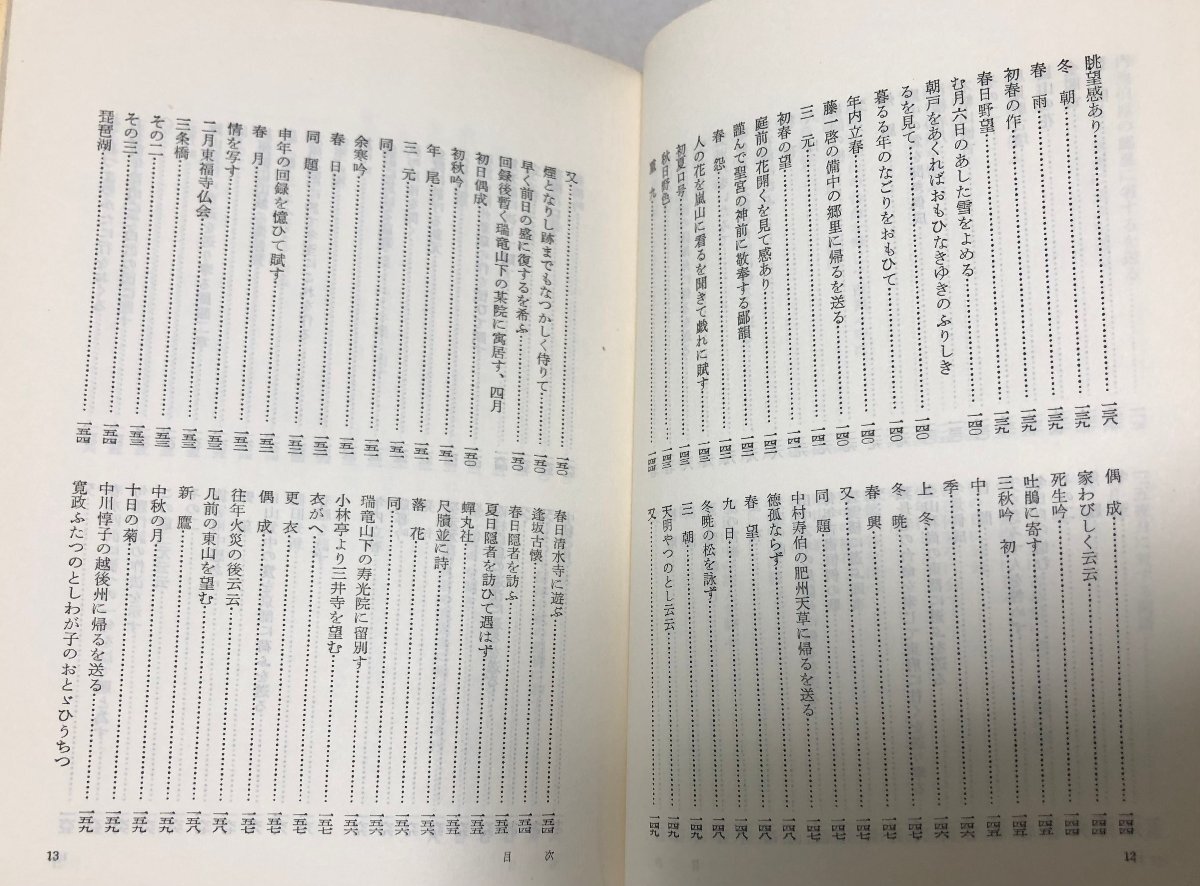 眺望感あり……一三八
冬朝……一三九
春雨……一三九
初春の作……一三九
春日野望……一三九
む月六日のあした雪をよめる……一四〇
朝戸をあくればおもひなきゆきのふりしき
るを見て……一四〇
暮るる年のなごりをおもひて……一四〇
年内立春……一四〇
藤一啓の備中の郷里に帰るを送る……一四一
三元……一四一
初春の望……一四二
庭前の花開くを見て感あり……一四二
謹んで聖宮の神前に敬奉する鄙韻……一四二
春怨……一四二
人の花を嵐山に看るを聞きて戯れに賦す……一四三
初夏口号……一四三
秋日野色……一四三
重九……一四四
偶成……一四四
家わびしく云云……一四四
死生吟……一四四
吐鵑に寄す……一四五
三秋吟 初……一四五
中……一四六
季……一四六
上冬……一四七
冬暁……一四七
春興……一四七
又……一四七
同題……一四七
中村寿伯の肥州天草に帰るを送る……一四八
徳孤ならず……一四八
春望……一四八
九日……一四八
冬暁の松を詠ず……一四八
三朝……一四九
天明やつのとし云云……一四九
又……一四九
12
又……一五〇
煙となりし跡までもなつかしく侍りて……一五〇
早く前日の盛に復するを希ふ……一五〇
回録後暫く瑞竜山下の某院に寓居す、四月
初日偶成……一五〇
初秋吟……一五一
年尾……一五一
三元……一五一
同……一五一
余寒吟……一五一
春日……一五二
同題……一五二
申年の回録を憶ひて賦す……一五二
春月……一五二
情を写す……一五三
二月東福寺仏会……一五三
三条橋……一五三
その二……一五三
その三……一五三
琵琶湖……一五四
春日清水寺に遊ぶ……一五四
逢坂古懐……一五四
春日隠者を訪ふ……一五四
夏日隠者を訪ひて遇はず……一五五
蟬丸社……一五五
尺牘並に詩……一五五
落花……一五六
同……一五六
瑞竜山下の寿光院に留別す……一五六
小林亭より三井寺を望む……一五六
衣がへ……一五七
更衣……一五七
偶成……一五七
往年火災の後云云……一五七
几前の東山を望む……一五八
新鷹……一五八
中秋の月……一五九
十日の菊……一五九
中川惇子の越後州に帰るを送る……一五九
寛政ふたつのとしわが子のおとゞひうちつ
目次
13